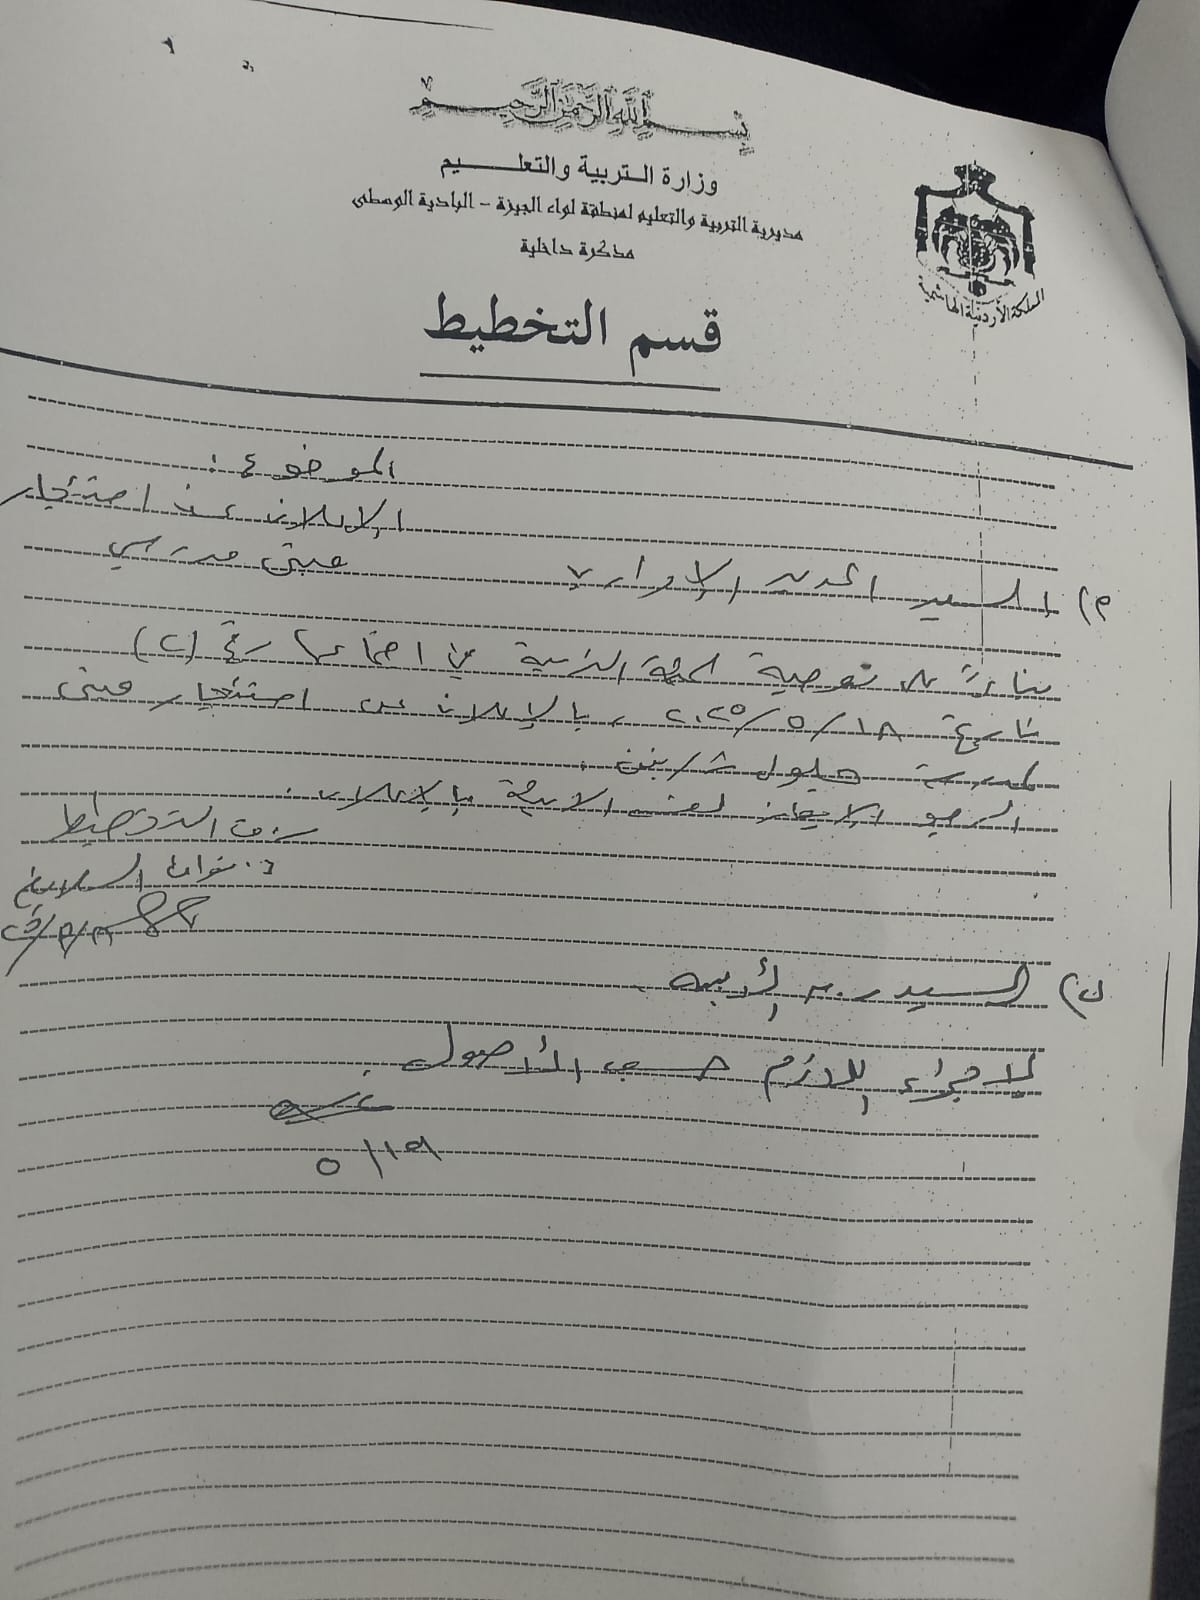 بسم الله الرحمن الرحيم
وزارة التربية والتعليم
مديرية التربية والتعليم لمنطقة لواء الجيزة - البادية الوسطى
مذكرة داخلية
المملكة الأردنية الهاشمية
قسم التخطيط
الموضوع:
الإعلان عن استئجار
مبنى مدرسي
م) السيد المدير الإداري
بناءً على توصية لجنة التربية في اجتماعها رقم (٢)
تاريخ ٢٠٢٥/٥/١٨ بالإعلان عن استئجار مبنى
لمدرسة
الرجو الإيعاز لقسم الأبنية بالإعلان.
التخطيط
د.
ن) السيد ر.ق الأبنية
لإجراء اللازم حسب الأصول.
٥/١٩